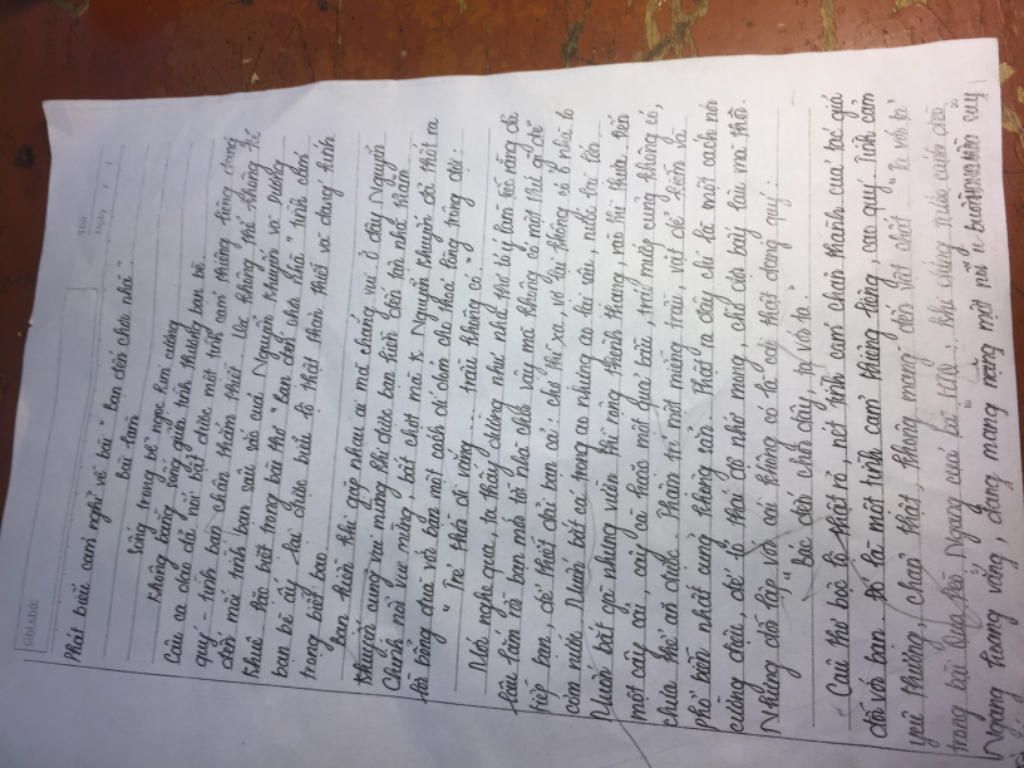 Giáo khoa:
Thứ
Ngày / /
Phát biểu cảm nghĩ về bài "bạn đến chơi nhà"
bài làm
Sống trong bể ngọc kim cương
Không bằng sống giữa tình thương bạn bè.
Câu ca dao đã nói về được một tình cảm thiêng liêng đáng
quý - tình bạn chân thành thắm thiết. Và không thể không kể
đến một tình bạn sâu sắc của Nguyễn Khuyến và Dương
Khuê đặc biệt trong bài thơ "Bạn đến chơi nhà" tình cảm
bạn bè ấy lại được biểu lộ thật thân thiết và đáng kính
trọng biết bao.
Bạn hiền khi gặp nhau ai mà chẳng vui ở đây Nguyễn
Khuyến cũng vui mừng khi được bạn hiền đến tận nhà thăm
Chính nỗi vui mừng, bất chợt mà Nguyễn Khuyến đã thốt ra
lời bông đùa với bạn một cách dí dỏm cho thỏa lòng mong đợi:
"Trẻ thời đi vắng trầu không có"
Mới nghe qua, ta thấy dường như nhà thơ
bạn mà tới nhà chơi vậy mà không có một thứ gì để
tiếp bạn, để thiết đãi bạn cả: chợ thì xa, vả lại không có ở nhà lo
cơm nước. Muốn bắt cá trong ao nhưng ao lại sâu, nước lại lớn
Muốn bắt gà nhưng vườn thì rộng thênh thang, rào thì thưa. Đến
một cây cải, cây cà hoặc một quả bầu, trái mướp cũng không có,
chưa thể ăn được. Thậm trí một miếng trầu, vật dễ kiếm và
phổ biến nhất cũng không sẵn. Thật ra đây chỉ là một cách nói
cường điệu, để tỏ thái độ nhớ mong, chờ đợi bấy lâu mà thôi.
Nhưng đối lập với cái không có là cái thật đáng quý:
"Bác đến chơi đây, ta với ta."
Câu thơ bộc lộ thật rõ, nét tình cảm chân thành của tác giả
đối với bạn. Đó là một tình cảm thiêng liêng, cao quý, tình cảm
yêu thương, chân thật, không màng đến vật chất. "Ta với ta"
trong bài Qua Đèo Ngang của bà Huyện đứng trước cảnh đèo
Ngang hoang vắng, đang mang nặng một nỗi u buồn